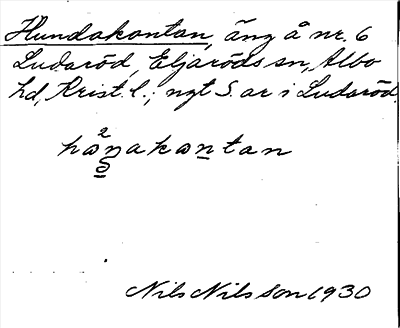 Hundakontan, äng å nr. 6
Ludaröd, Eljaröds sn, Albo
hd, Krist. l.; ngt S. ar i Ludaröd.
Nils Nilsson 1930